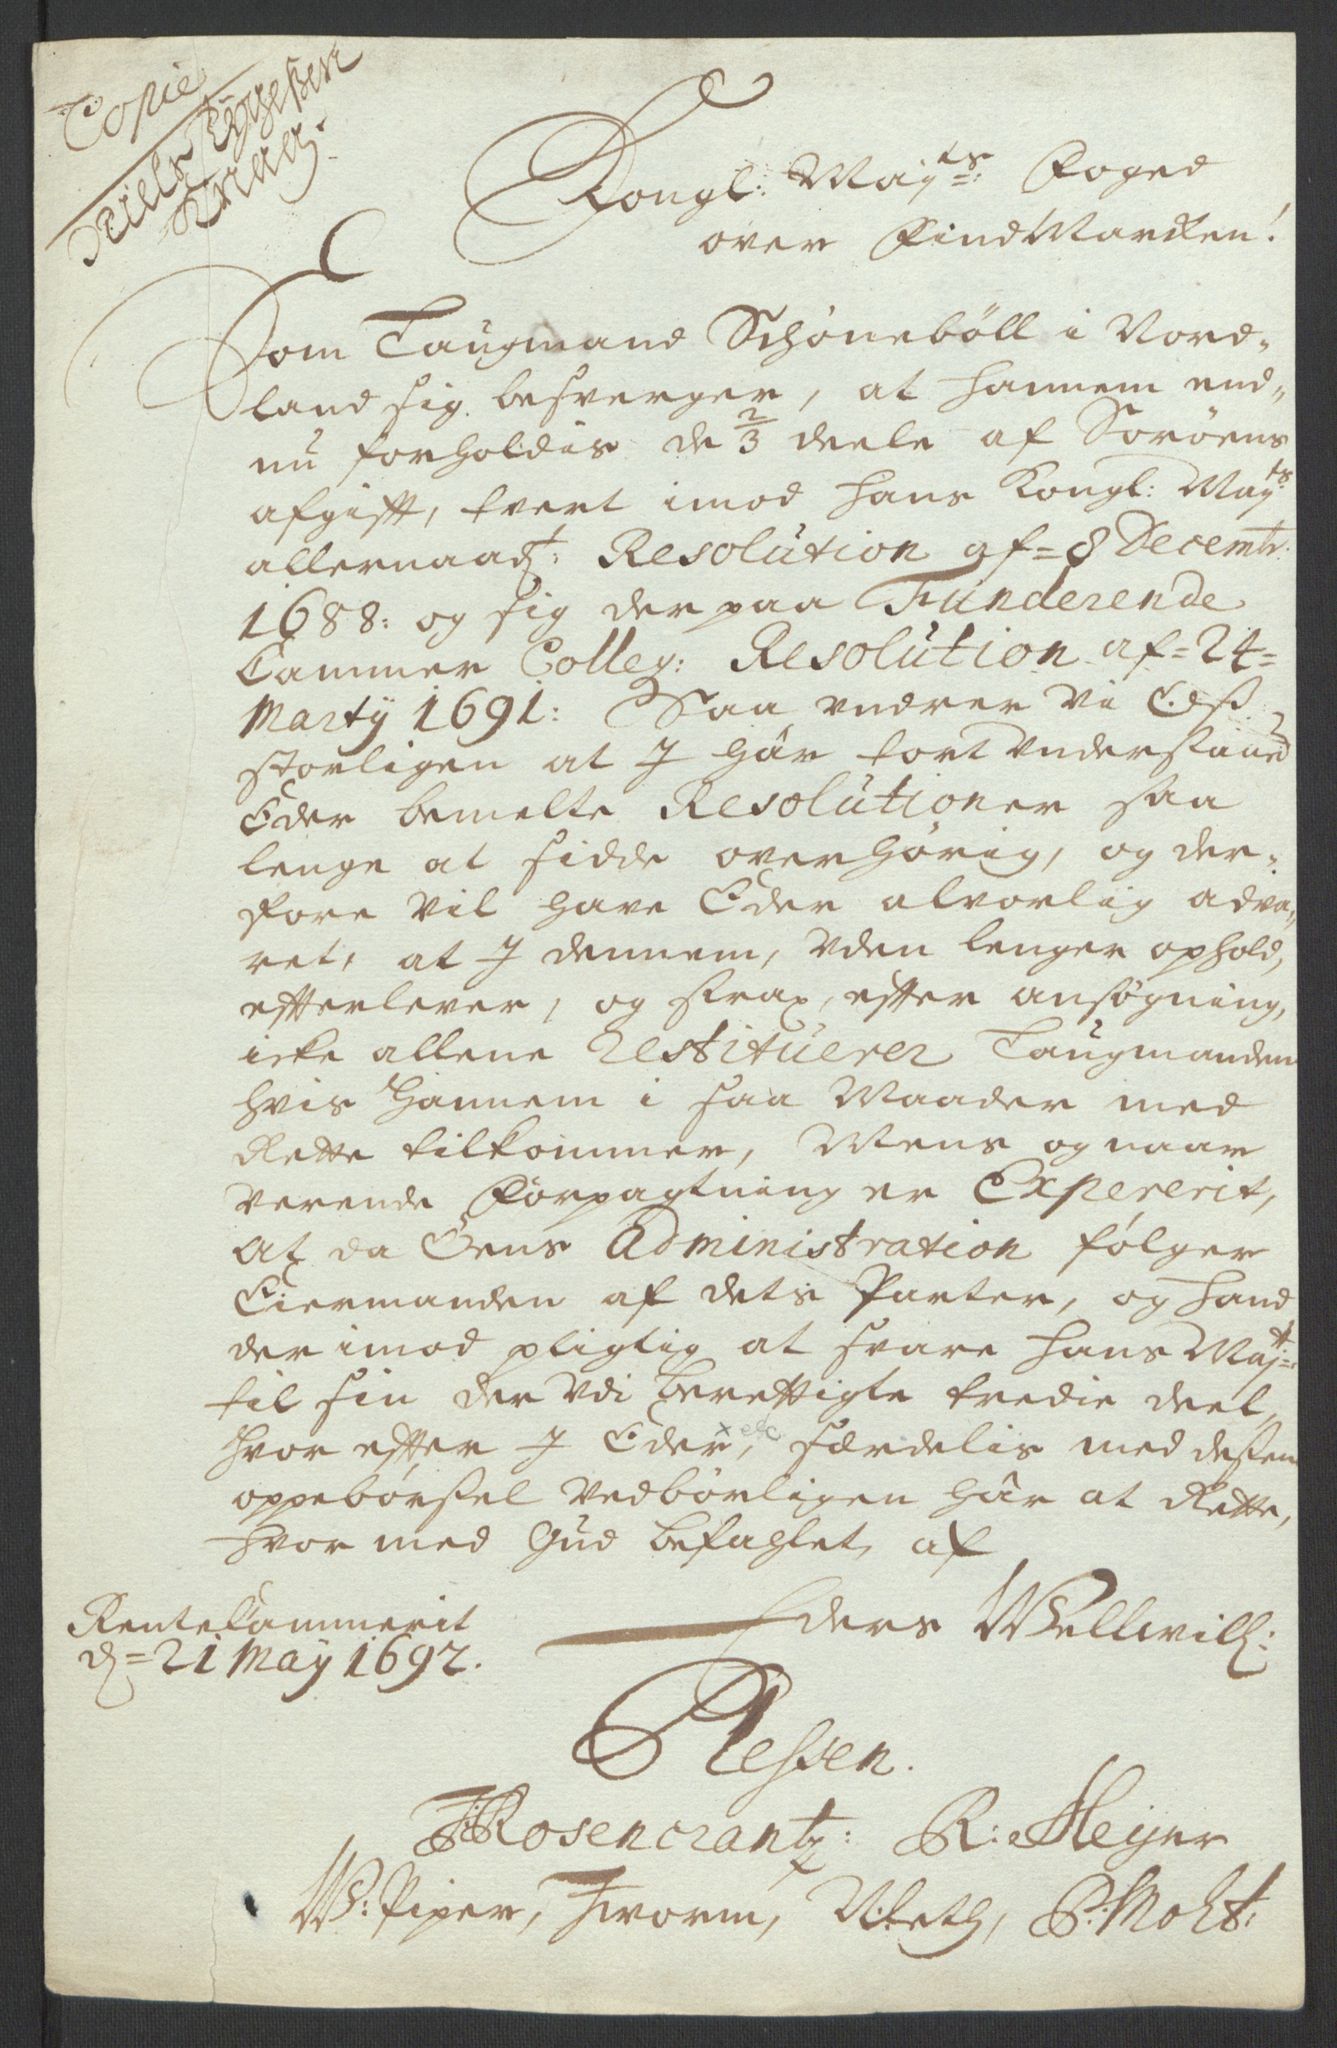 Copie
Niels Knag.
Kongl: Mayts: Foged
over FindMarcken!
Som Laugmand Schönebøll i Nord-
land sig besverger, at hannem end-
nu forholdis de 2/3 deele af Sorøens
afgifft, tvert imod hans Kongl: Mayts
allernaadt: Resolution af 8 Decembr:
1688: og sig der paa Funderende
Cammer Colleg: Resolution af 24
Marty 1691: Saa undrer Vi Oeß
storligen at I har tort Understaaed
Eder bemelte Resolutioner saa
lenge at sidde overhørig, og der-
fore Vil have Eder alvorlig adva-
ret, at I dennem, Uden lenger ophold,
effterlever, og strax, effter ansøgning,
icke allene restituerer Laugmanden
hvis hannem i saa Maader med
Rette tilkommer, Mens og naar
Verende Forpagtning er Expererit,
At da Øens Administration følger
Eiermanden af dets Parter, og hand
der imod pligtig at svare hans Mayt:
til sin der Udi berettigte tredie deel,
Hvor effter I Eder, særdelis med dessen
oppebørsel Vedbørligen har at Rette,
Hvor med Gud befahlet, af
RenteCammerit
d= 21 May 1692.
Eders Wellwill:
Plessen.
Rosencrantz: R: Meyer
W: Piper, Tworm, P: Moht: